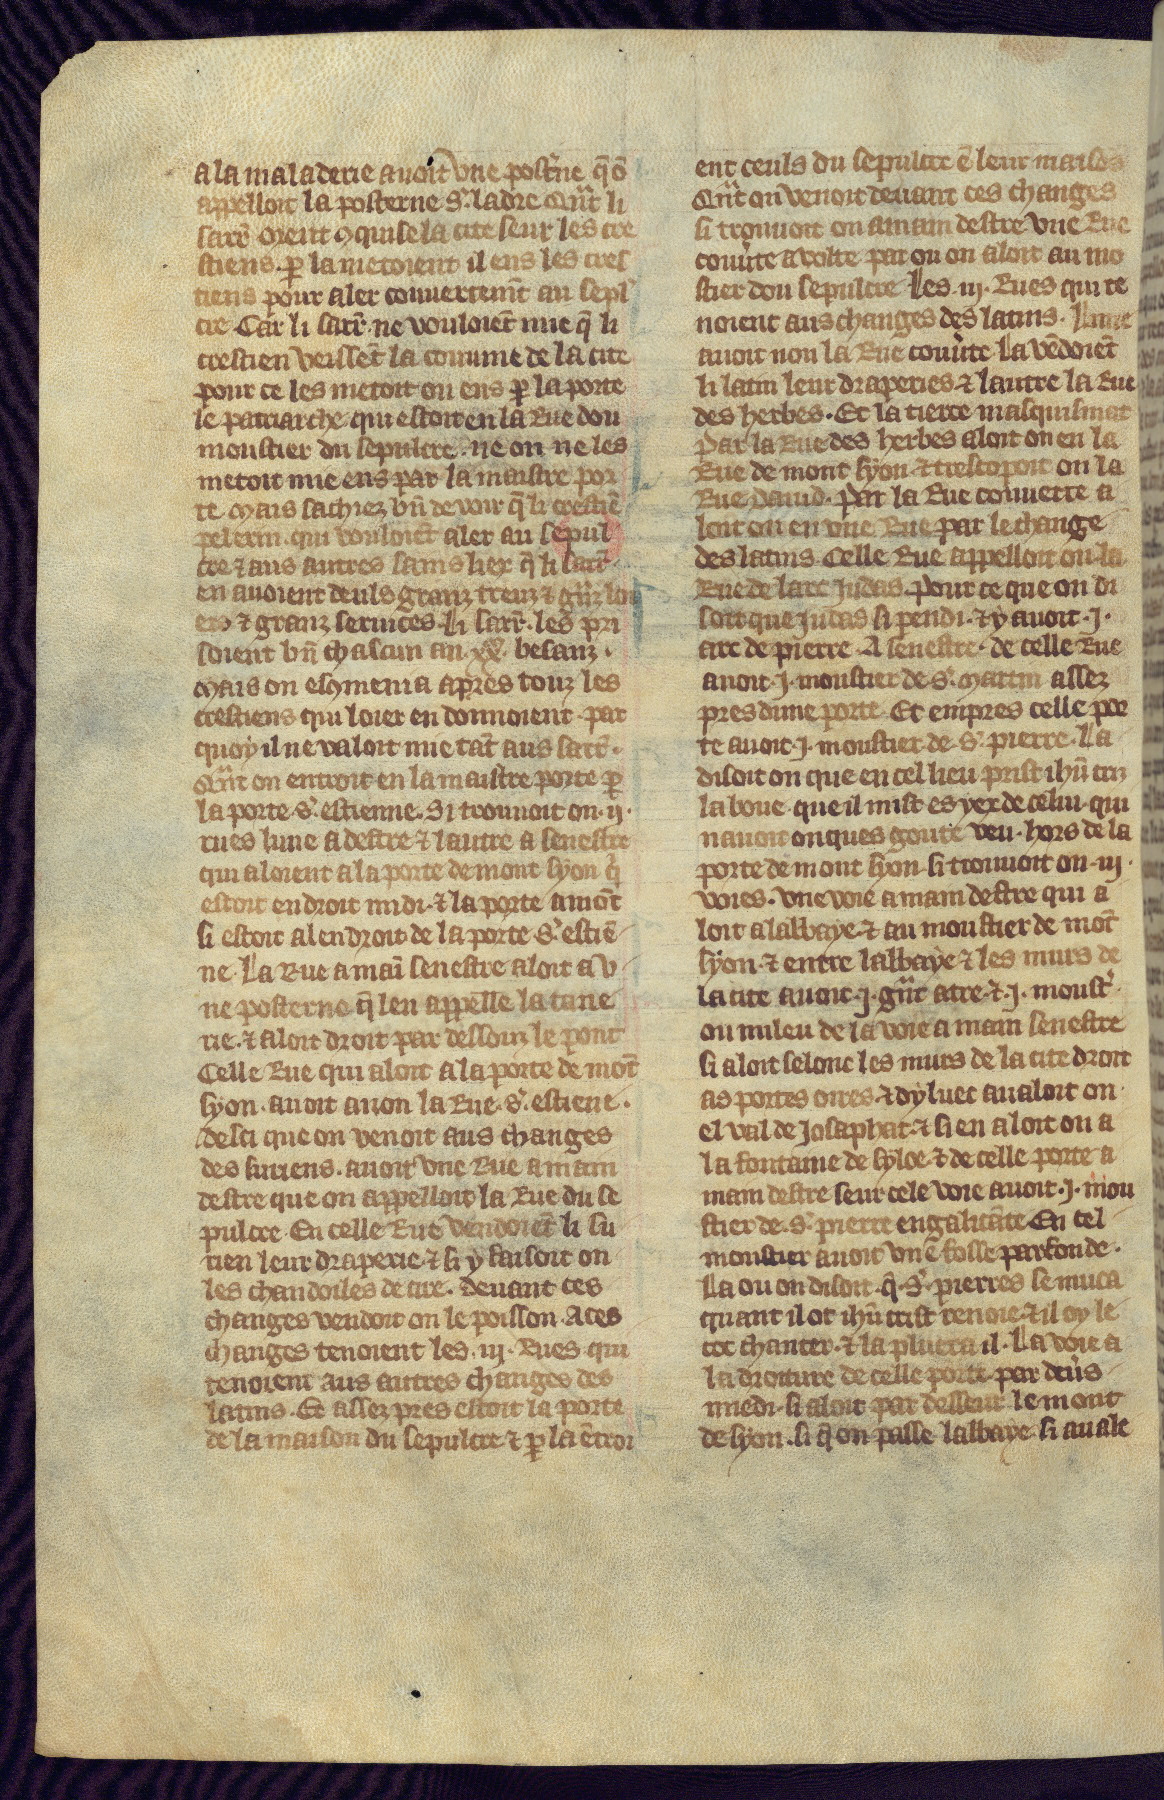 a la maladerie auoit vne post̾ne q̄ō
appelloit la posterne s᷒. ladre Qn̄t li
sarr̄ orent ꝯquise la cite seur les cre
stiens. ꝑ la metoient il ens les cres
tiens pour aler couuertem̄t au sepl̾
cre Car li sarr̄. ne vouloiēt mie q̄ li
crestien veissēt la couuine de la cite
pour ce les metoit on ens ꝑ la porte
le patriarche qui estoit en la Rue dou
moustier du sepulcre. ne on ne les
metoit mie ens par la maistre por
te Mais sachiez bn̄ de voir q̄ li crestiē
pelerin. qui vouloiēt aler au sepul
cre ⁊ aus autres sains liex q̄ li sarr̄.
en auoient deuls granz treuz ⁊ gn̄z lou
ers ⁊ granz seruices. Li sarr̄. les pri
soient bn̄ chascun an besanz.
Mais on eschmenia apres touz les
crestiens qui loier en donnoient. par
quoy il ne valoit mie tāt aus sarr̄.
Qn̄t on entroit en la maistre porte ꝑ
la porte s᷒. estienne. Si trouuoit on .ij.
rues lune a destre ⁊ lautre a senestre
qui aloient a la porte de mont syon q̄
estoit endroit midi. ⁊ la porte a mōt
si estoit al endroit de la porte s᷒. estiē
ne. La Rue a maī senestre aloit a v
ne posterne q̄ len appelle la tane
rie. ⁊ aloit droit par dessouz le pont
Celle Rue qui aloit a la porte de mōt
syon. auoit a non la Rue. s᷒. estiene.
desci que on venoit aus changes
des suriens. auoit vne Rue a main
destre que on appelloit la Rue du se
pulcre En celle Rue vendoiēt li su
rien leur draperie. ⁊ si y faisoit on
les chandoiles de cire. deuant ces
changes vendoit on le poisson. A ces
changes tenoient les .iij. Rues qui
tenoient aus autres changes des
latins. Et assez pres estoit la porte
de la maison du sepulcre ⁊ ꝑ la ētroi
ent ceuls du sepulcre ē leur maisōs
Qn̄t on venoit deuant ces changes
si trouuoit on a main destre vne Rue
couu̾te a volte par ou on aloit au mo
stier dou sepulcre Les .iij. Rues qui te
noient aus changes des latins. Lune
auoit non la Rue couu̾te La vēdoiēt
li latin leur draperies ⁊ lautre la Rue
des herbes. Et la tierce malquisinat
Par la Rue des herbes aloit on en la
Rue de mont syon ⁊ trescopoit on la
Rue Dauid. Par la Rue couuerte a
loit on en vne Rue par le change
des latins Celle Rue appelloit on la
Rue de larc Judas. Pour ce que on di
soit que Judas si pendi. ⁊ y auoit .j.
arc de pierre. A senestre de celle Rue
auoit .j. moustier de s᷒. Martin assez
pres dune porte. Et empres celle por
te auoit .j. moustier de s᷒. pierre. La
disoit on que en cel lieu prist ih̄u criz
la boue que il mist es yex de celui qui
nauoit onques goute veu. hors de la
porte de mont syon si trouuoit on .iij.
voies. Vne voie a main destre qui a
loit a labbaye. ⁊ au moustier de mōt
syon. ⁊ entre labbaye ⁊ les murs de
la cite auoit .j. gn̄t atre. ⁊ .j. moust̾
ou mileu de la voie a main senestre
si aloit selonc les murs de la cite droit
as portes oires. ⁊ dyluec aualoit on
el val de Josaphat. ⁊ si en aloit on a
la fontaine de syloe. ⁊ de celle porte a
main destre seur cele voie auoit .j. mou
stier de. s᷒. pierre en galicāte En cel
moustier auoit vne fosse parfonde.
La ou on disoit q̄ s᷒. pierres se muca
quant il ot ih̄u crist renoie ⁊ il oy le
coc chanter. ⁊ la pluera il. La voie a
la droiture de celle porte par deu̾s
miedi. si aloit par desseur le mont
de syon. si q̄ on passe labbaye si auale